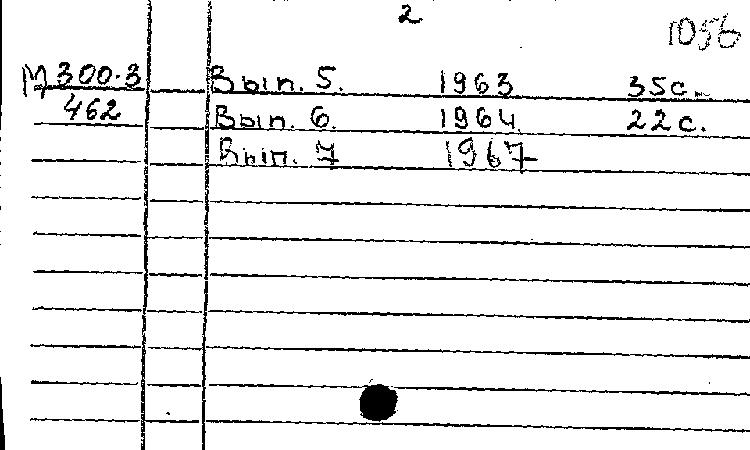 2
1056
М 300.3 Вып. 5. 1963 35с.
462 Вып. 6. 1964. 22с.
Вып. 7 1967